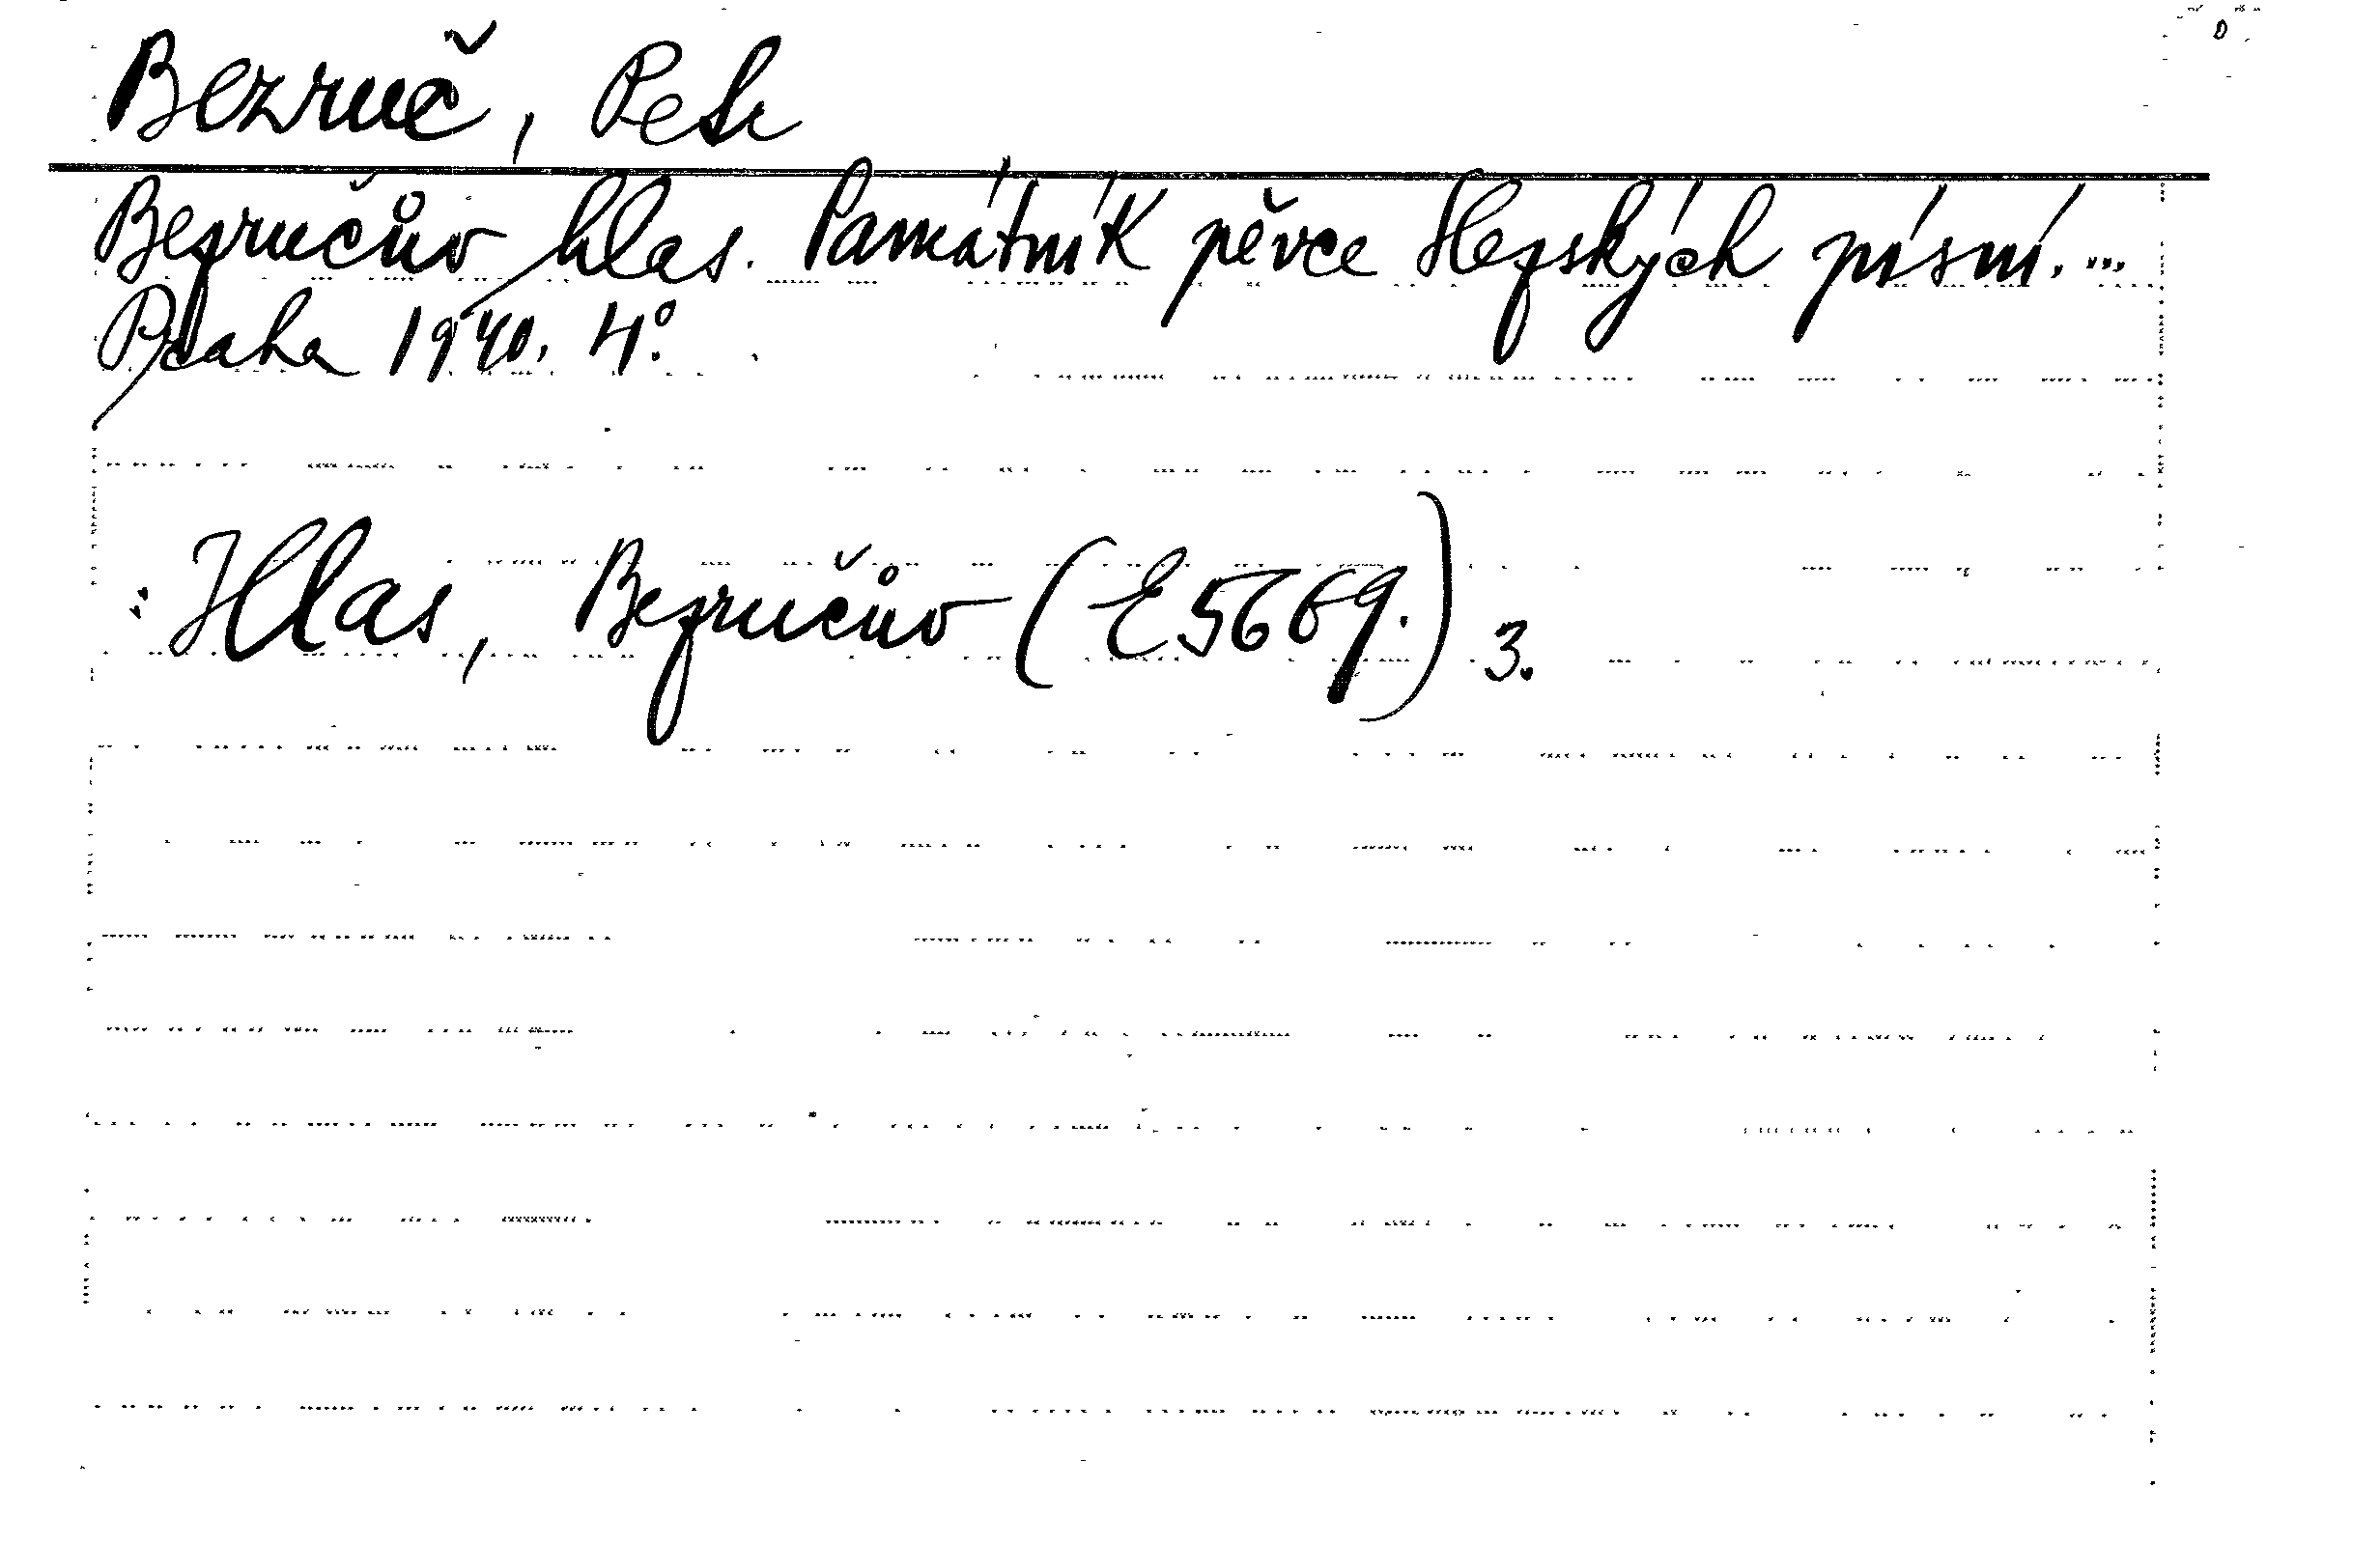 Bezruč, Petr
Bezručův hlas. Památník pěvce Slezských písní. ...
Praha 1940. 4°.
: Hlas, Bezručův (E5669.) 3.